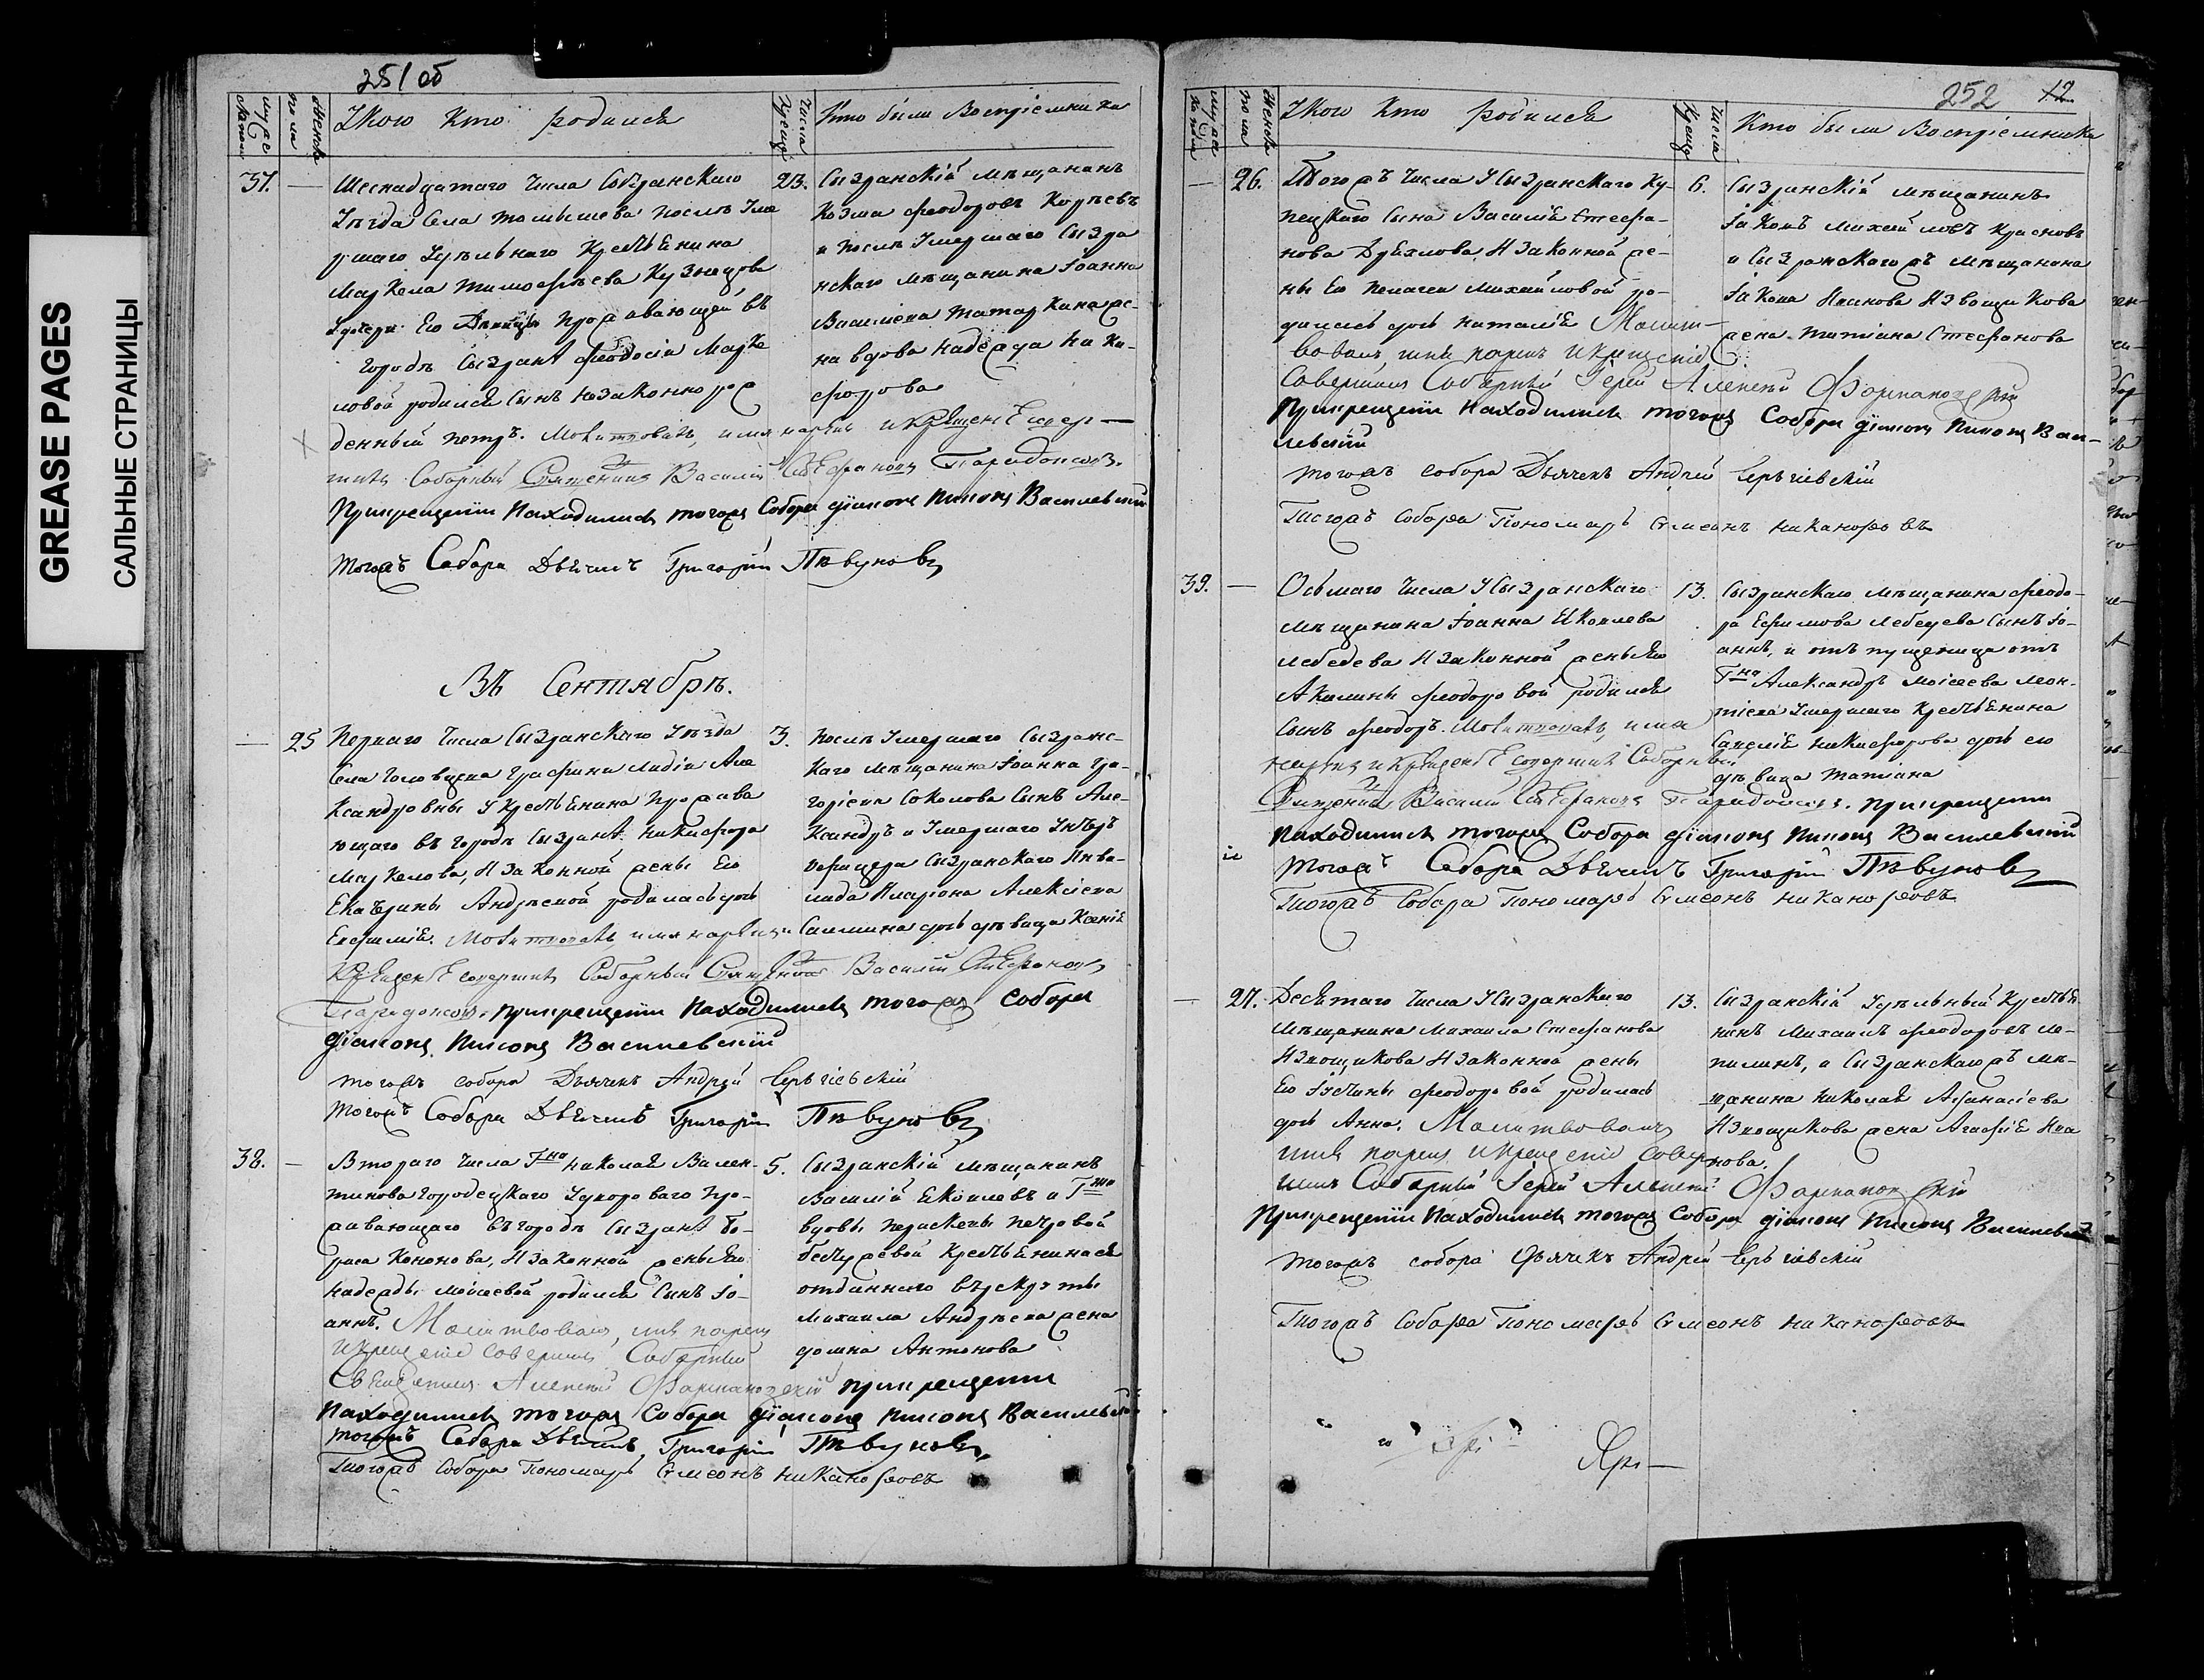 GREASE PAGES
САЛЬНЫЕ СТРАНИЦЫ
251 об
мужеска пола
женска пола
У кого кто родился
Числа Крещ.
Кто были Воспріемники
37. — Шеснадцатаго Числа Сызранскаго
Уезда Села Томышева после Уме
ршаго Удельнаго Крестьянина
Маркела Тимофеева Кузнецова
дочери Его Девицы Проживающей въ
Городе Сызране Феодосіи Марке
ловой родился Сынъ Незаконнорож
денный Петръ. Молитвовалъ, имя нарекъ и крещеніе совер—
шилъ Соборный Священникъ Василій Стефановъ Парадоксовъ.
При крещеніи Находились тогожъ Собора діаконъ Никонъ Василевскій
тогожъ Собора Дьячекъ Григорій Певуновъ
23. Сызранскій мещанинъ
Козма Феодоровъ
и после Умершаго Сызра
нскаго мещанина Іоанна
Василіева Татаркина же-
на вдова Надежда Ники-
форова
Въ Сентябре.
— 25 Перваго Числа Сызранскаго Уезда
Села Головцина Графини Лидіи Але
ксандровны У Крестьянина Прожива
ющаго въ Городе Сызране Никифора
Маркелова, И Законной жены Его
Екатерины Андреевой родилась дочь
Евфимія. Молитвовалъ, имя нарекъ и
крещеніе совершилъ Соборный Священникъ Василій Стефановъ
Парадоксовъ. При крещеніи Находились тогожъ Собора
діаконъ Никонъ Василевскій
тогожъ собора Дьячекъ Андрей Сергіевскій
тогожъ Собора Дьячекъ Григорій Певуновъ
3. после Умершаго Сызранс-
каго Мещанина Іоанна Гри-
горіева Соколова Сынъ Але-
ксандръ и Умершаго Унтеръ
Офицера Сызранскаго Инва-
лида Иларіона Алексіева
дочь девица Ксенія
38. — Втораго Числа Гна Николая Вален-
тинова Городецкаго Дворового Про-
живающаго въ городе Сызране Бо-
риса Кононова, И Законной жены Его
Надежды Моисеевой родился Сынъ Іо-
аннъ. Молитвовалъ, имя нарекъ
и крещеніе совершилъ Соборный
Священникъ Алексей При крещеніи
Находились тогожъ Собора діаконъ Никонъ Василевскій
тогожъ Собора Дьячекъ Григорій Певуновъ
Тогожъ Собора Пономарь Симеонъ Никаноровъ
5. Сызранскій мещанинъ
Василій Яковлевъ и Гжи
вдовы Параскевы Петровой
Крестьянина
отданнаго въ рекруты
Михаила Андреева жена
домна Антонова
252 12
мужеска пола
Женска пола
У кого кто родился
Числа Крещ.
Кто были Воспріемники
— 26. Тогожъ Числа У Сызранскаго Ку-
пецкаго Сына Василія Стефа-
нова И Законной же-
ны Его Пелагеи Михайловой ро-
дилась дочь Наталія Молит-
вовалъ имя нарекъ и крещеніе
Совершилъ Соборный Іерей Алексей
При крещеніи Находились тогожъ Собора діаконъ Никонъ Васи-
левскій
тогожъ собора Дьячекъ Андрей Сергіевскій
Тогожъ Собора Пономарь Симеонъ Никаноровъ
6. Сызранскій мещанинъ
Іаковъ Михайловъ Красновъ
и Сызранскагожъ мещанина
Іакова Иванова Извощикова
жена Татіана Стефанова
39. — Осьмаго Числа У Сызранскаго
мещанина Іоанна Яковлева
Лебедева И Законной жены Его
Акилины Феодоровой родился
Сынъ Феодоръ. Молитвовалъ, имя
нарекъ и крещеніе совершилъ Соборный
Священникъ Василій Стефановъ Парадоксовъ. При крещеніи
находились тогожъ Собора діаконъ Никонъ Василевскій
тогожъ Собора Дьячекъ Григорій Певуновъ
Тогожъ Собора Пономарь Симеонъ Никаноровъ
13. Сызранскаго мещанина Феодо-
ра Ефимова Лебедева Сынъ Іо-
аннъ, и отпущеница отъ
Гна Александръ Моисеева Леон-
тіева Умершаго Крестьянина
Савелія Никифорова дочь его
девица Татіана
— 27. Десятаго Числа У Сызранскаго
Мещанина Михаила Стефанова
Извощикова И Законной жены
Его Іустины Феодоровой родилась
дочь Анна. Молитвовалъ
имя нарекъ и крещеніе совер-
шилъ Соборный Іерей Алексей
При крещеніи Находились тогожъ Собора діаконъ Никонъ Василевскій
тогожъ собора Дьячекъ Андрей Сергіевскій
Тогожъ Собора Пономарь Симеонъ Никаноровъ
13. Сызранскій Удельный Крестья-
нинъ Михаилъ Феодоровъ
и Сызранскагожъ ме-
щанина Николая Афанасіева
Извощикова жена Агафія Ива
нова.